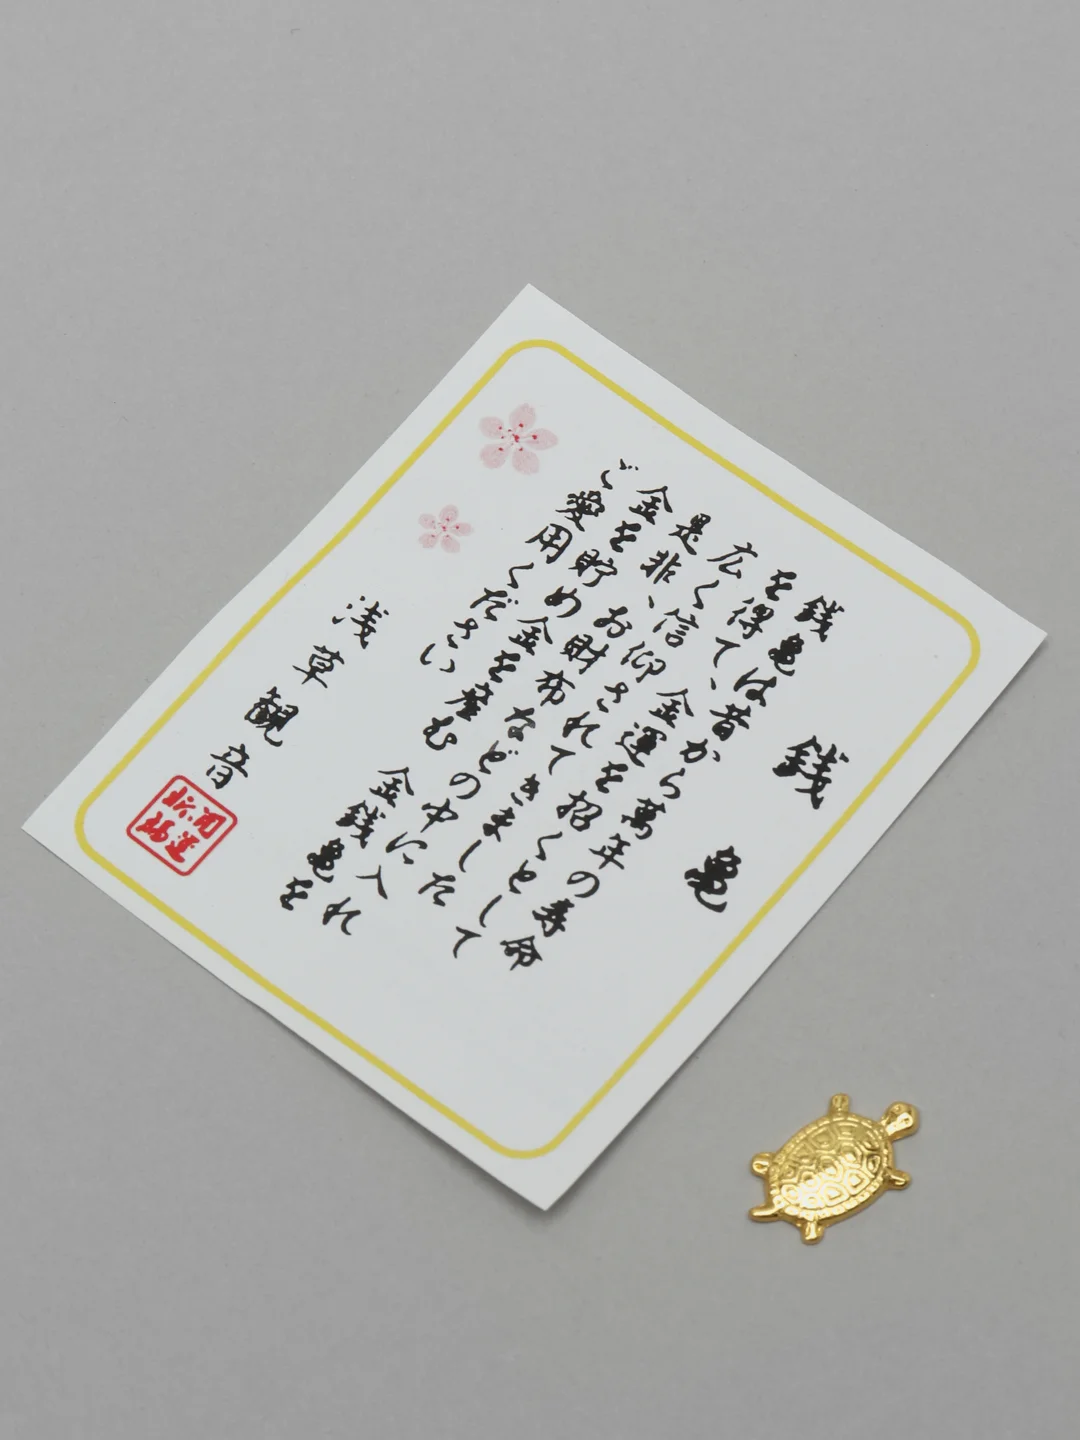 銭亀
銭亀は昔から萬年の寿命
を得て、金運を招くとして
広く信仰されてきました
是非、お財布などの中に入れ
金を貯め金を産む金銭亀を
ご愛用ください
浅草観音